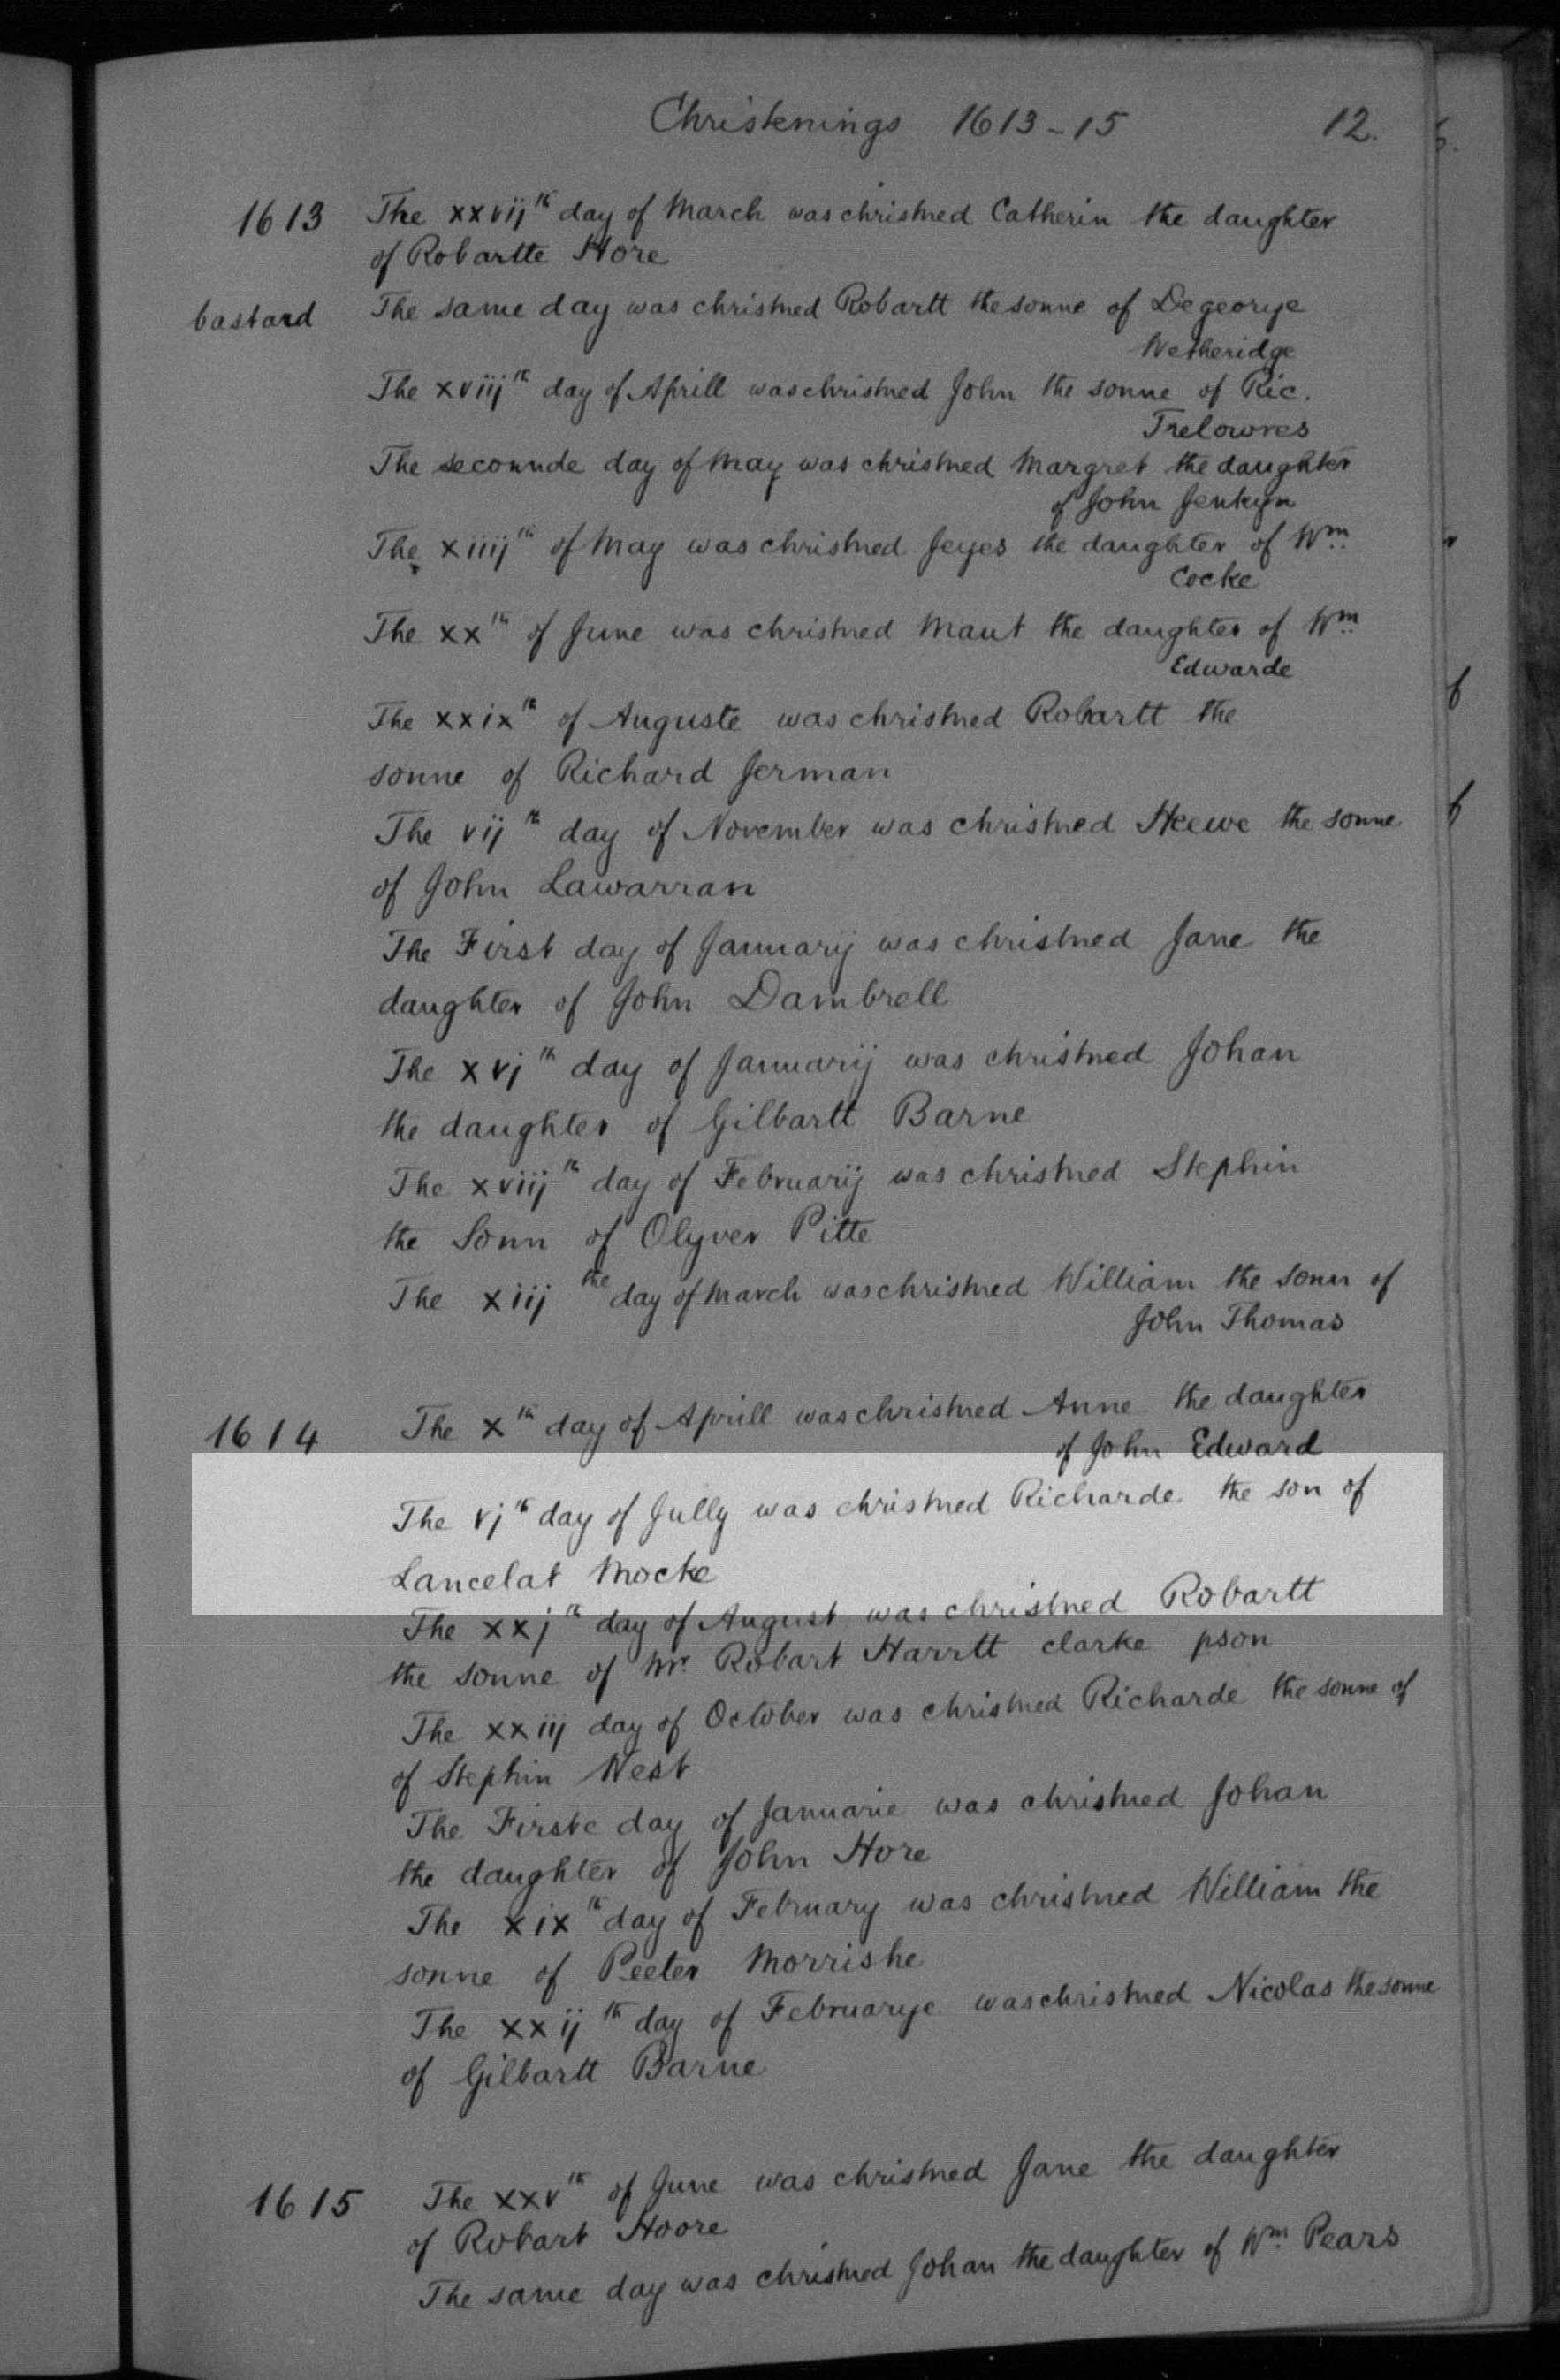 Christenings 1613-15 12.
1613 The xxvijth day of March was christned Catherin the daughter
of Robartte Hore
bastard The same day was christned Robartt the sonne of Degeorye
Wetheridge
The xviijth day of Aprill was christned John the sonne of Ric.
Trelowres
The seconnde day of May was christned Margret the daughter
of John Jenkyn
The xiiijth of May was christned Jeyes the daughter of Wm.
Cocke
The xxth of June was christned Maut the daughter of Wm.
Edwarde
The xxixth of Auguste was christned Robartt the
sonne of Richard Jerman
The vijth day of November was christned Heewe the sonne
of John Lawarran
The First day of Januarij was christned Jane the
daughter of John Dambrell
The xvjth day of Januarij was christned Johan
the daughter of Gilbartt Barne
The xviijth day of Februarij was christned Stephin
the Sonn of Olyver Pitte
The xiij the day of March was christned William the Sonn of
John Thomas
1614 The xth day of Aprill was christned Anne the daughter
of John Edward
The vjth day of Jully was christned Richarde the son of
Lancelat Mocke
The xxjth day of August was christned Robartt
the sonne of Mr Robart Harrtt clarke pson
The xxiij day of October was christned Richarde the sonne of
of Stephin West
The Firste day of Januarie was christned Johan
the daughter of John Hore
The xixth day of February was christned William the
sonne of Peeter Morrishe
The xxijth day of Februarye was christned Nicolas the sonne
of Gilbartt Barne
1615 The xxvth of June was christned Jane the daughter
of Robart Hoore
The same day was christned Johan the daughter of Wm. Pears